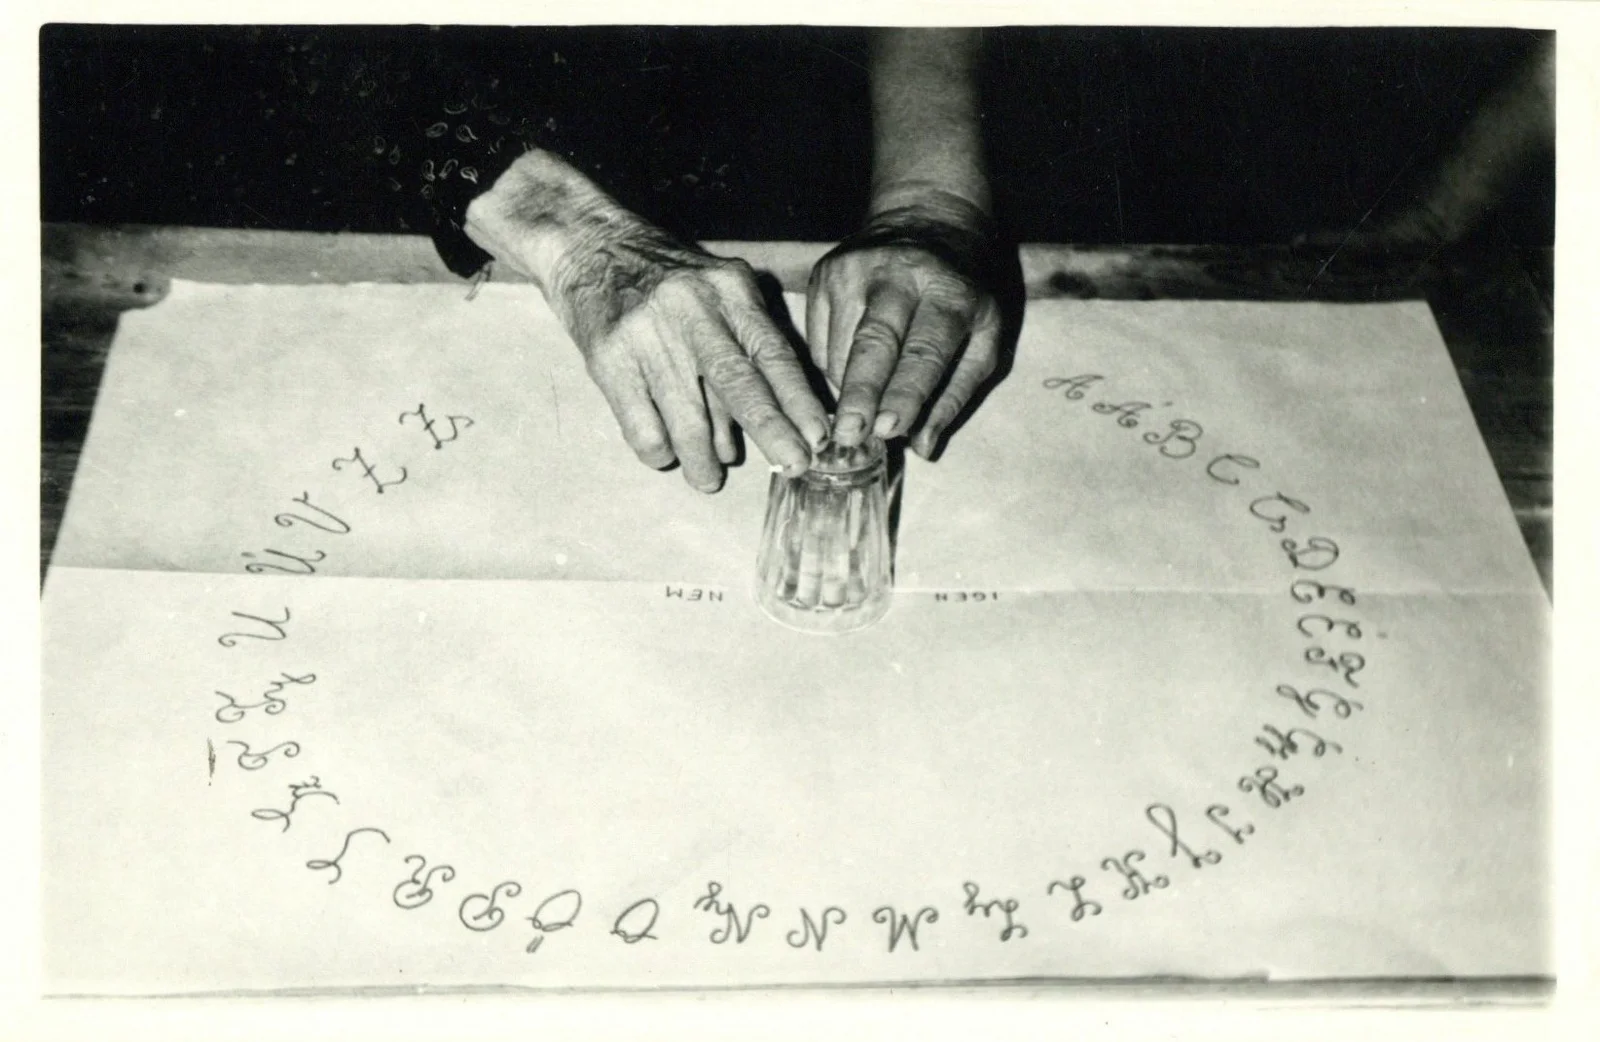 A Á B C Cs D E É F G Gy H I J K L Ly M N Ny O Ő P R S Sz T Ty U Ú V Z Zs
IGEN NEM